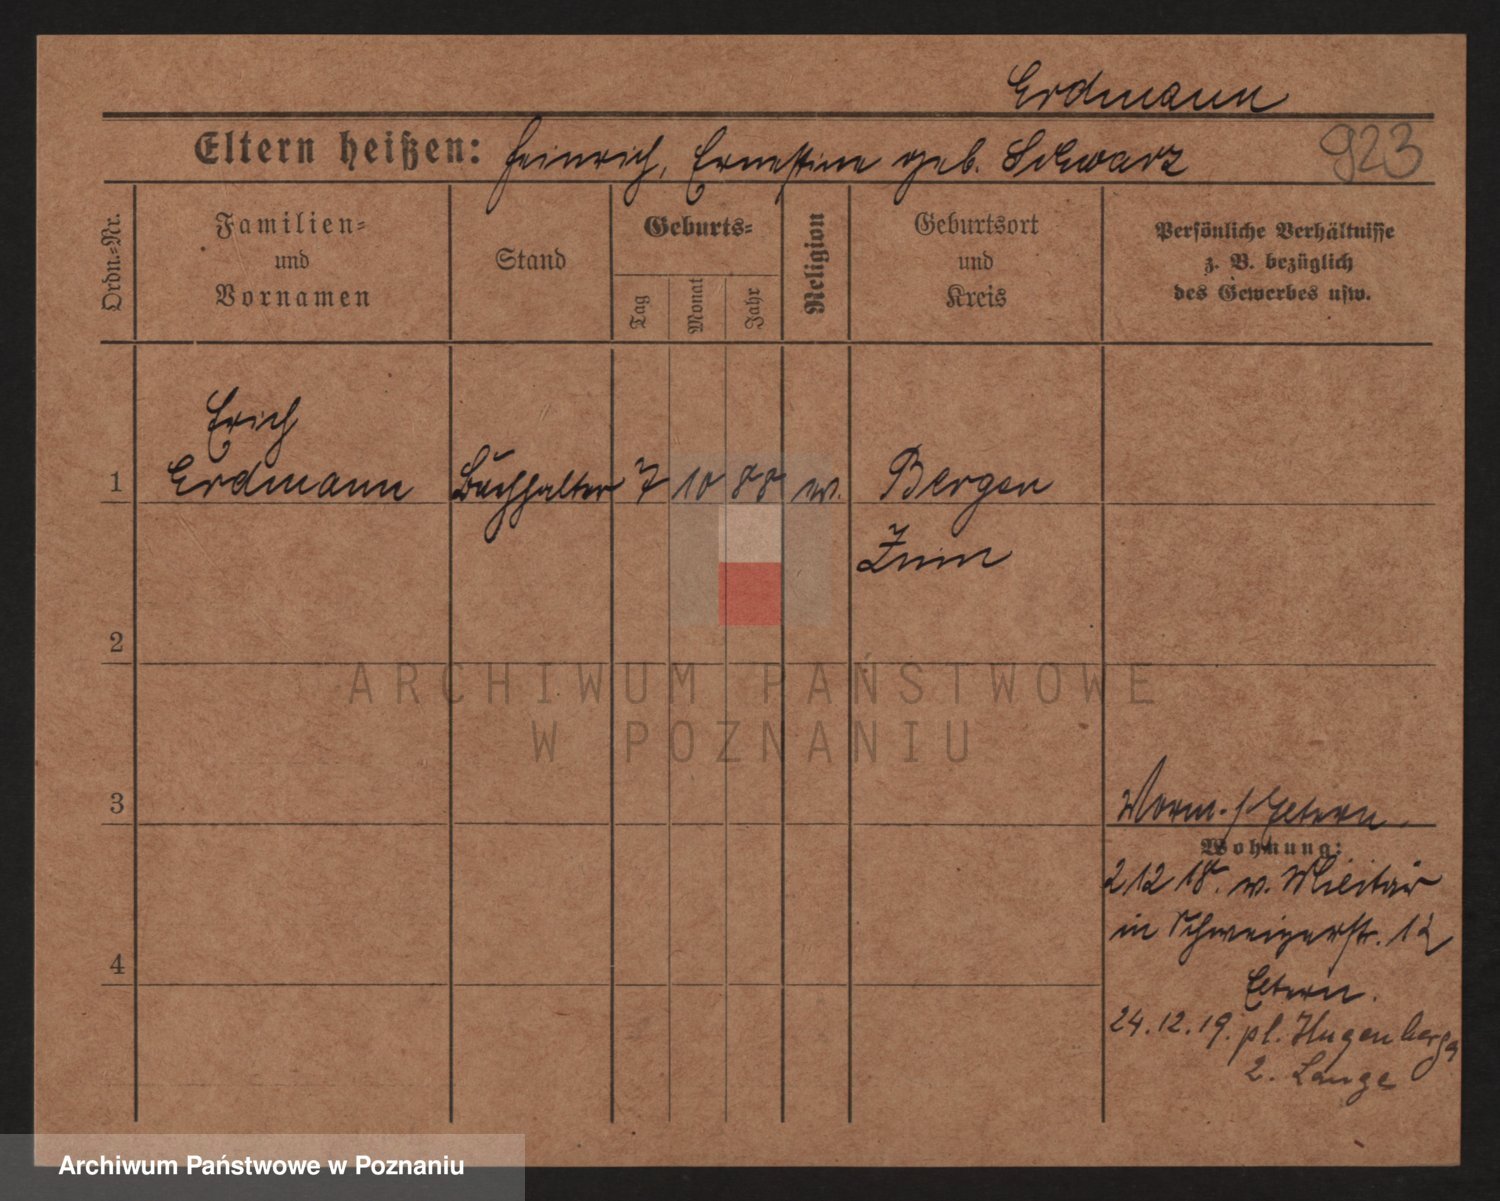 Erdmann
Eltern heißen: Heinrich, Ernestine geb. Schwarz
923
Ordn.-Nr.
Familien-
und
Vornamen
Stand
Geburts-
Tag
Monat
Jahr
Religion
Geburtsort
und
Kreis
Persönliche Verhältnisse
z. B. bezüglich
des Gewerbes usw.
Erich
1 Erdmann Buchhalter 7 10 88 Bergen
Znin
2
ARCHIWUM PAŃSTWOWE
W POZNANIU
3
Eltern
Wohnung:
2 12 18. v. Militär
in Schweizerstr. 12
Eltern.
4
24.12.19. pl. Hugenberga
2. Lange
Archiwum Państwowe w Poznaniu